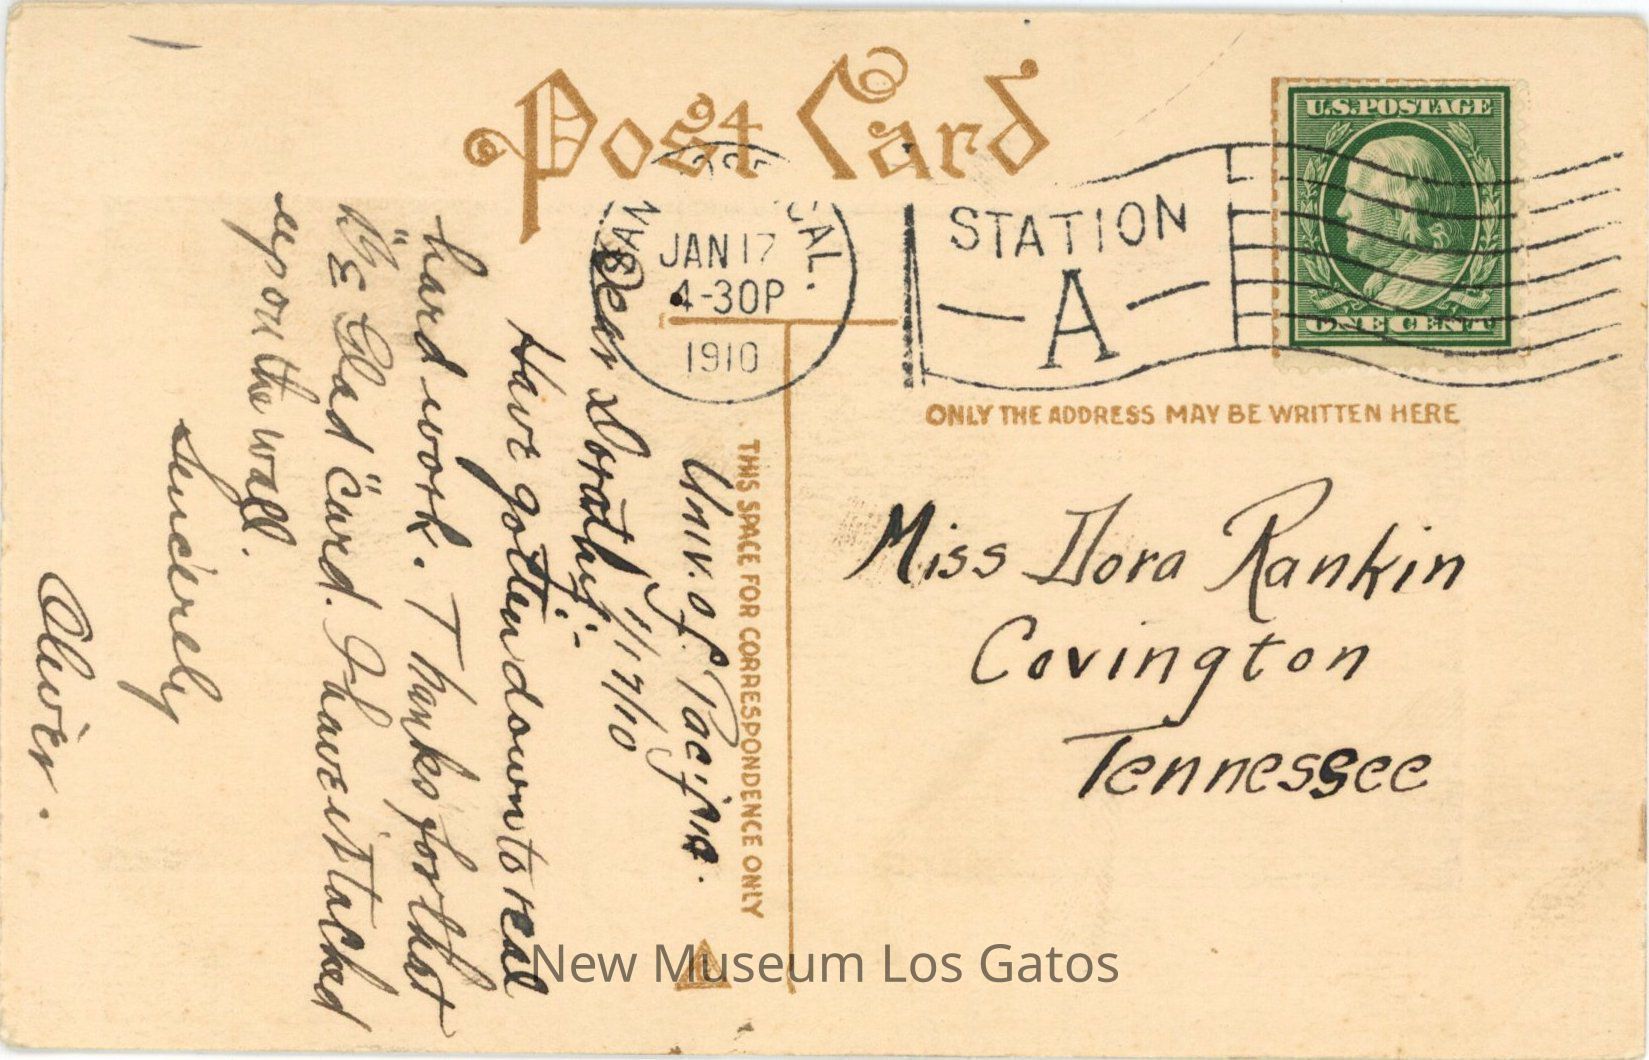 Post Card
JAN 17
4-30P
1910
CAL.
STATION
A
U.S. POSTAGE
ONE CENT
ONLY THE ADDRESS MAY BE WRITTEN HERE
THIS SPACE FOR CORRESPONDENCE ONLY
Miss Dora Rankin
Covington
Tennessee
Univ. of Pacific.
1/17/10
Dear Dorothy:-
Have gotten down to real
hard work. Thanks for that
"Be Glad" card. I have it tacked
upon the wall.
Sincerely
Oliver.
New Museum Los Gatos